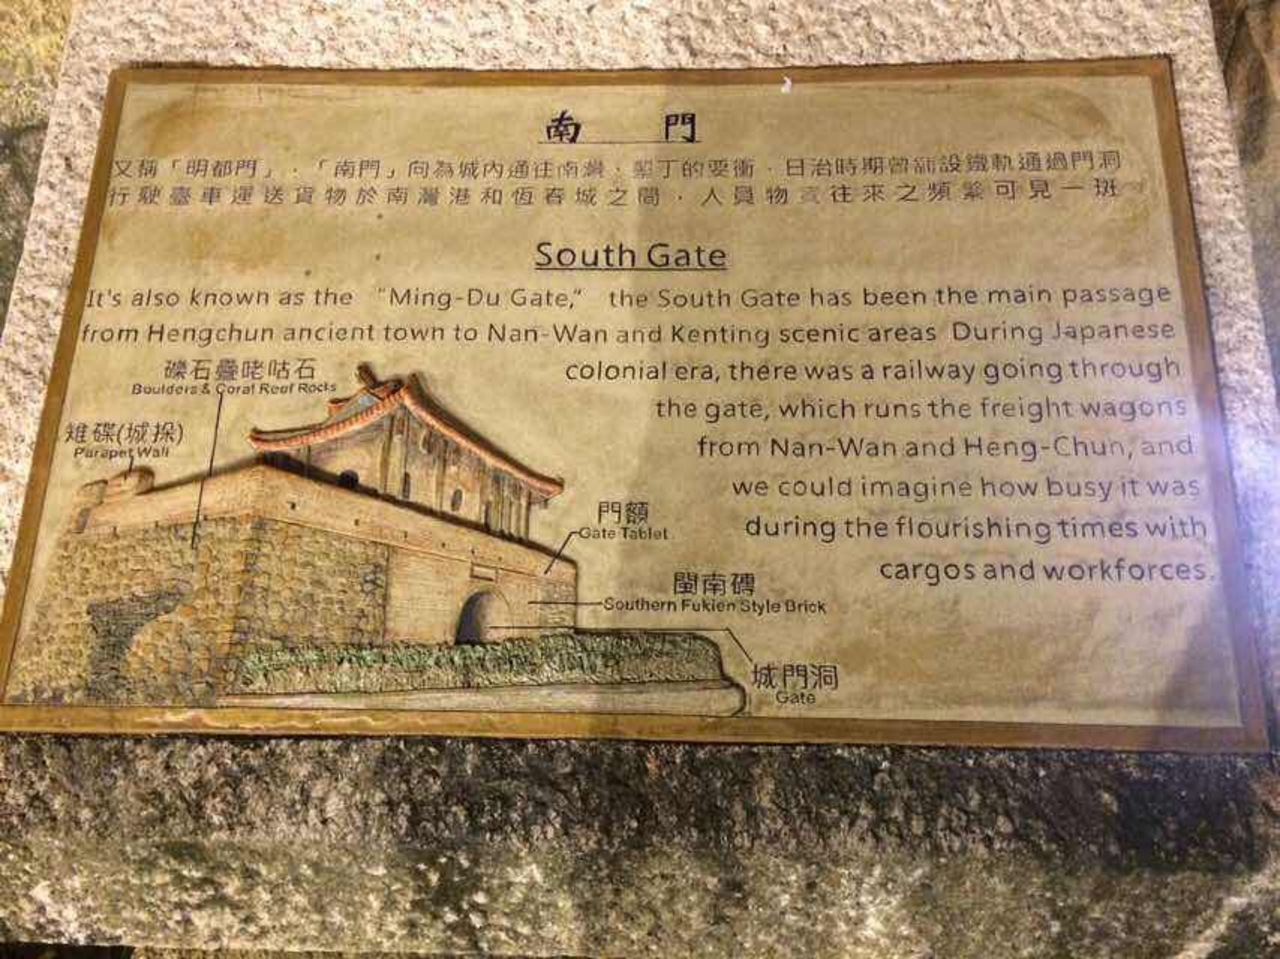 南 門
又稱「明都門」，「南門」向為城內通往南灣、墾丁的要衝，日治時期曾鋪設鐵軌通過門洞
行駛臺車運送貨物於南灣港和恆春城之間，人員物 往來之頻繁可見一斑
South Gate
It's also known as the "Ming-Du Gate," the South Gate has been the main passage
from Hengchun ancient town to Nan-Wan and Kenting scenic areas During Japanese
colonial era, there was a railway going through
the gate, which runs the freight wagons
from Nan-Wan and Heng-Chun, and
we could imagine how busy it was
during the flourishing times with
cargos and workforces.
礫石疊咾咕石
Boulders & Coral Reef Rocks
雉碟(城採)
Parapet Wall
門額
Gate Tablet
閩南磚
Southern Fukien Style Brick
城門洞
Gate